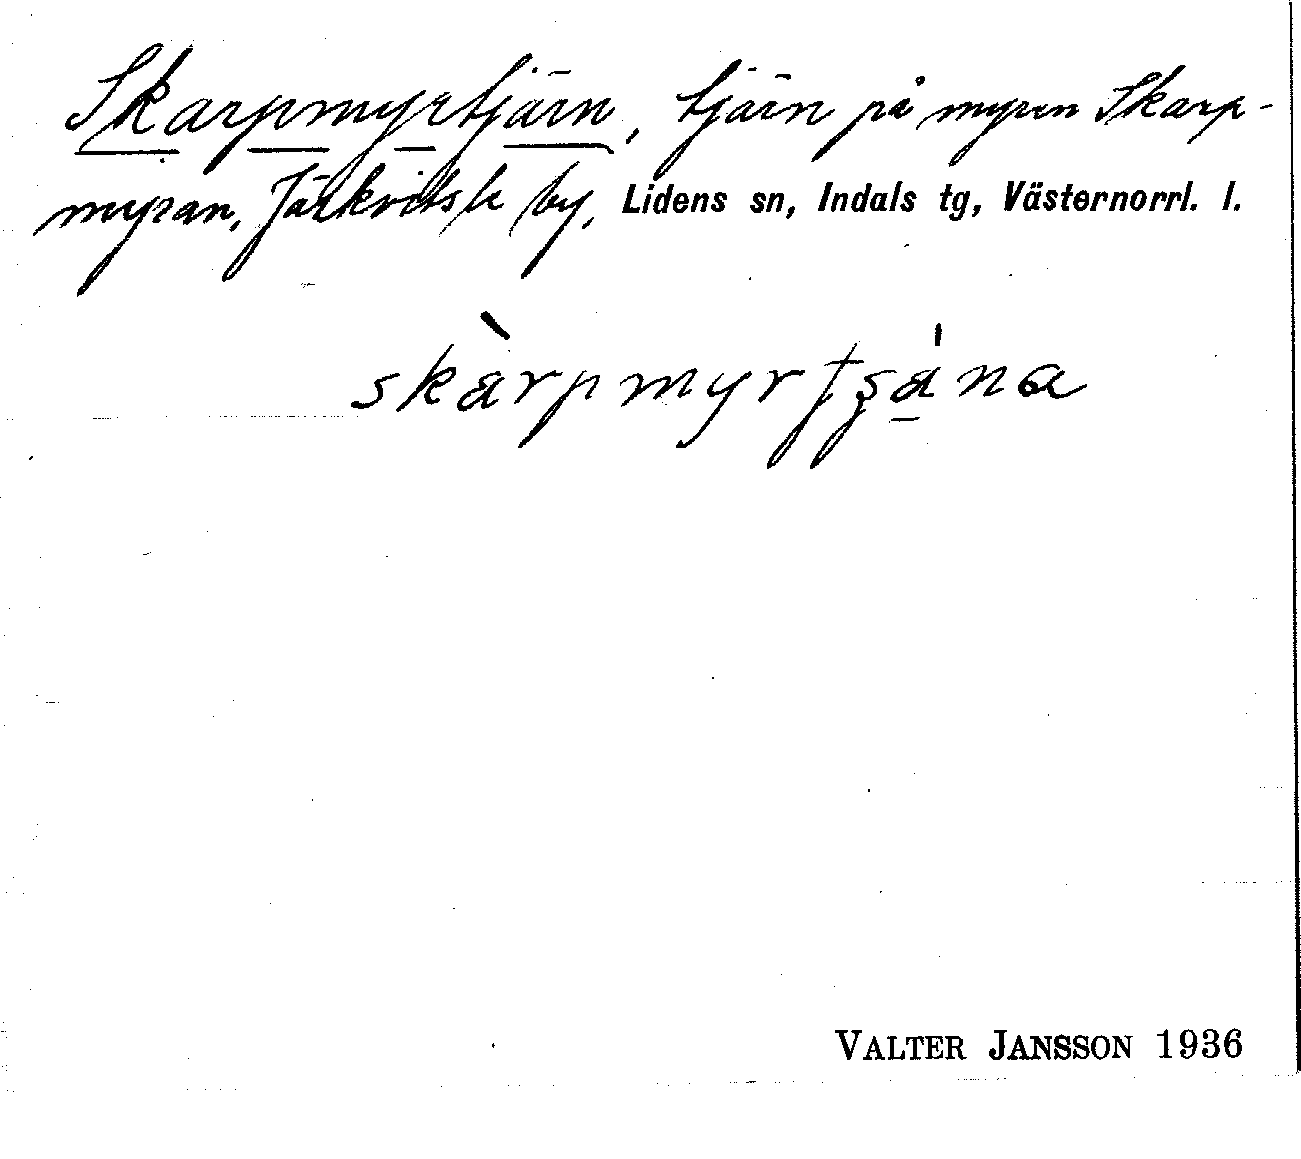 Skarpmyrtjärn, tjärn på myren Skarp-
myran, Järkvitsle by, Lidens sn, Indals tg, Västernorrl. l.
skàrpmyrtʂána
VALTER JANSSON 1936